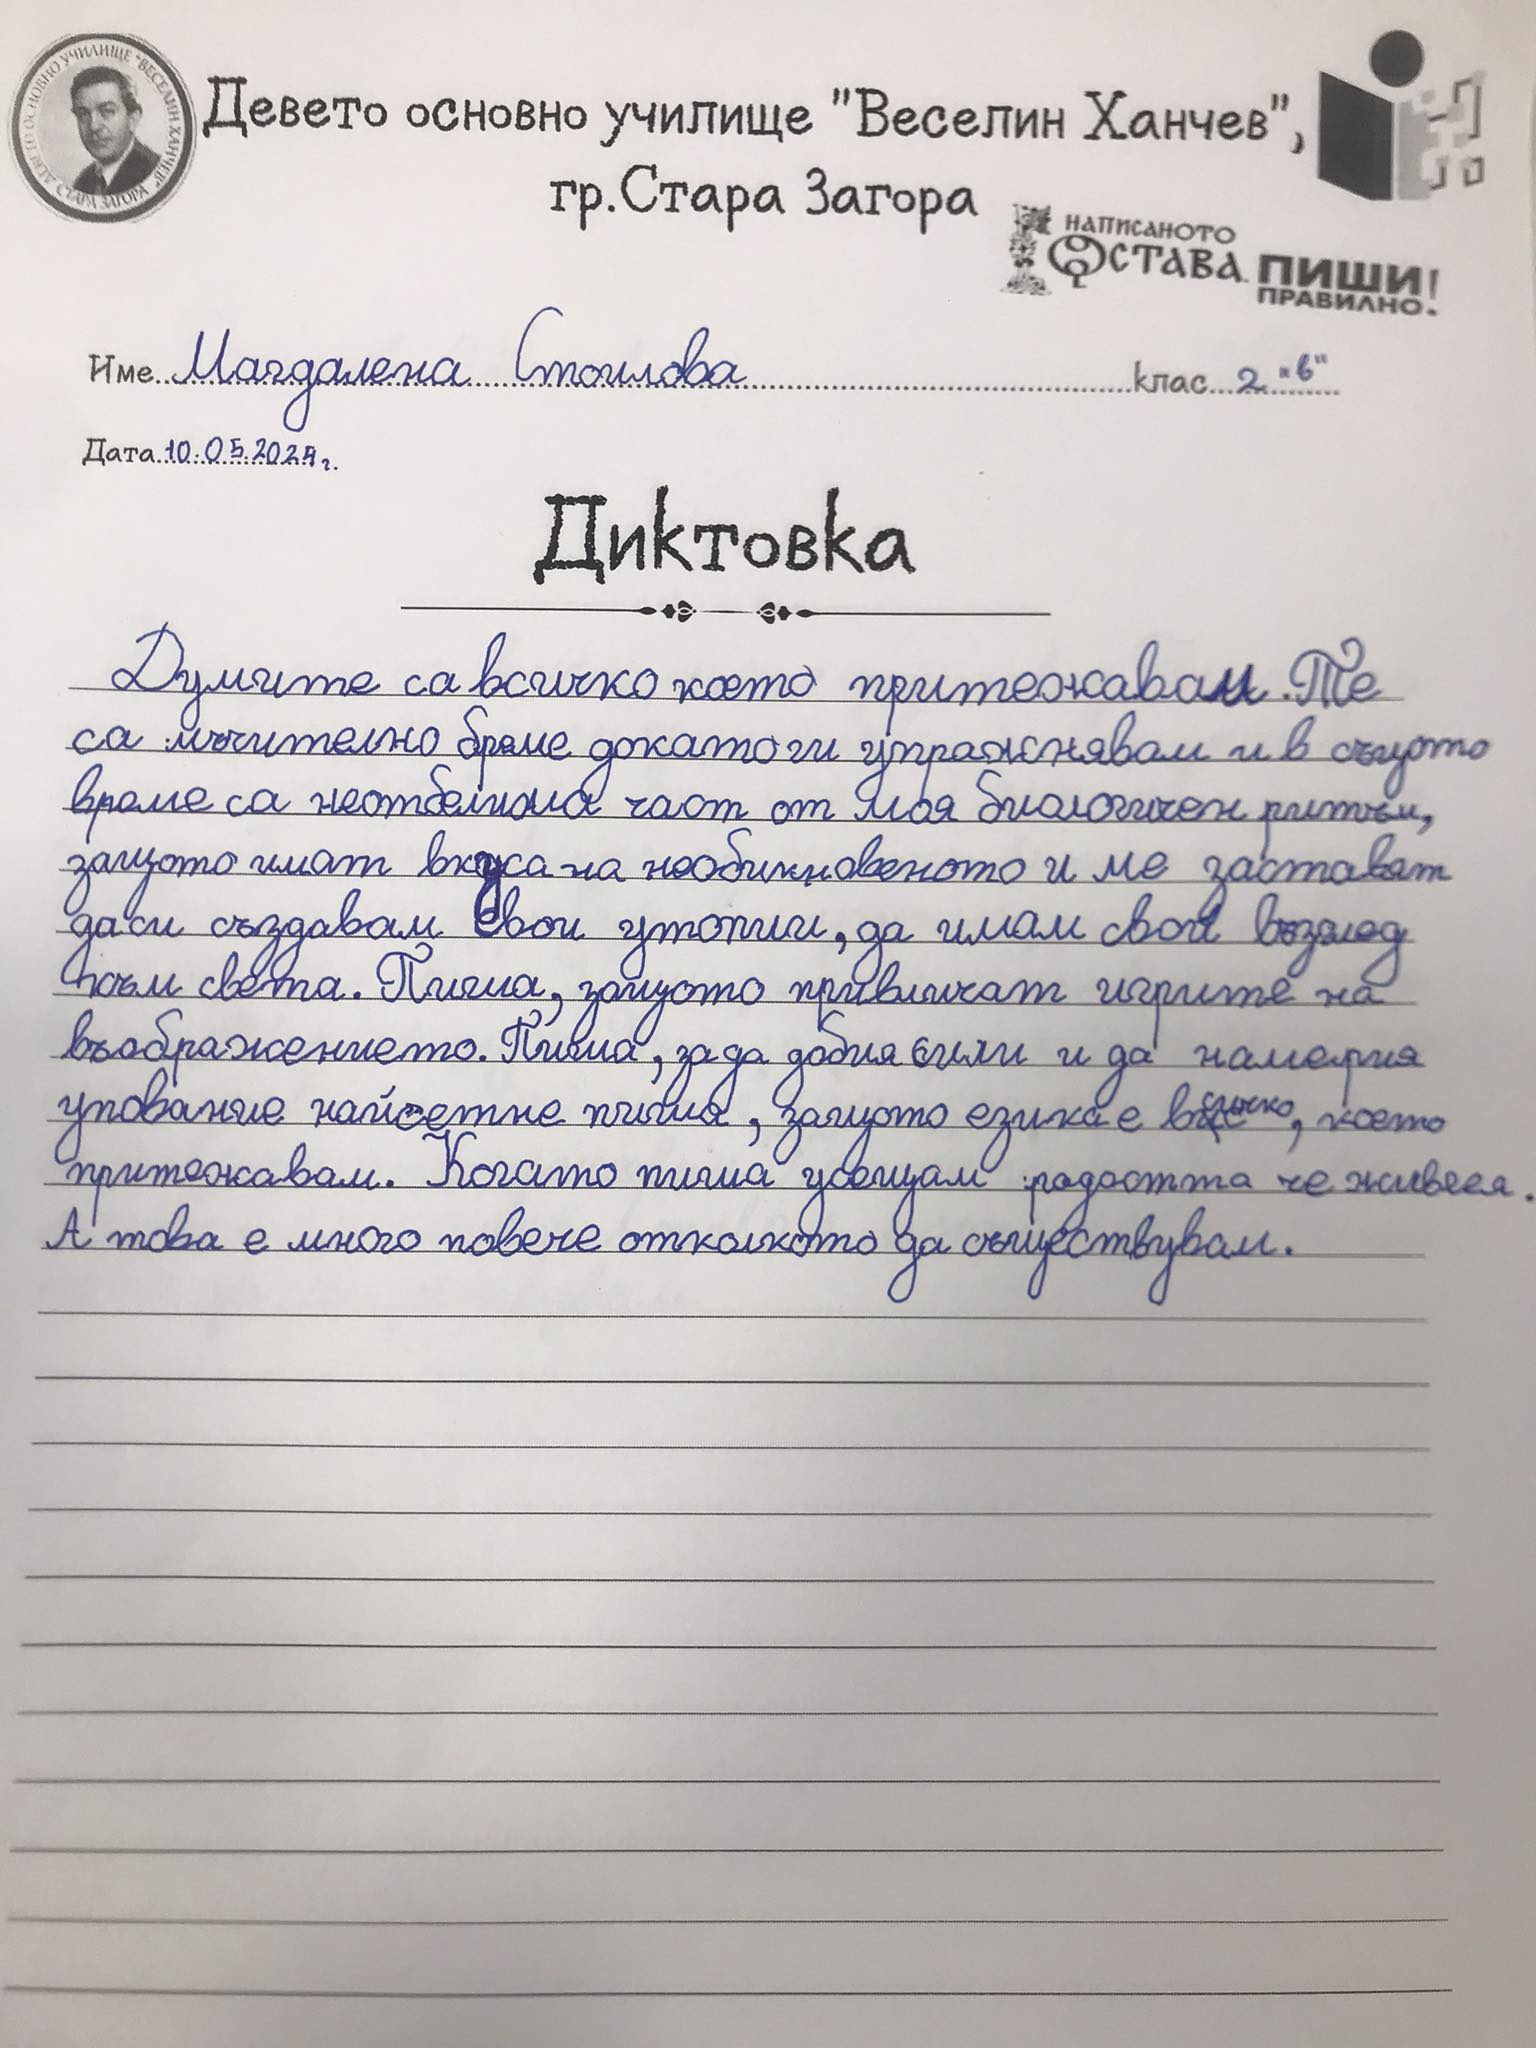 ДЕВЕТО ОСНОВНО УЧИЛИЩЕ "ВЕСЕЛИН ХАНЧЕВ" СТАРА ЗАГОРА
Девето основно училище "Веселин Ханчев",
гр.Стара Загора
НАПИСАНОТО
ОСТАВА ПИШИ
ПРАВИЛНО!
Име Магдалена Стоилова клас 2 "в"
Дата 10.05.2024г.
Диктовка
Думите са всичко което притежавам. Те
са мъчително бреме докато ги упражнявам и в същото
време са неотбелима част от моя биологичен ритъм,
защото имат вкуса на необикновеното и ме заставят
да си създавам свои утопии, да имам свой възглед
към света. Пиша, защото привличат игрите на
въображението. Пиша, за да добия сили и да намеря
упование найсетне пиша, защото езика е всичко, което
притежавам. Когато пиша усещам радостта че живея.
А това е много повече отколкото да съществувам.